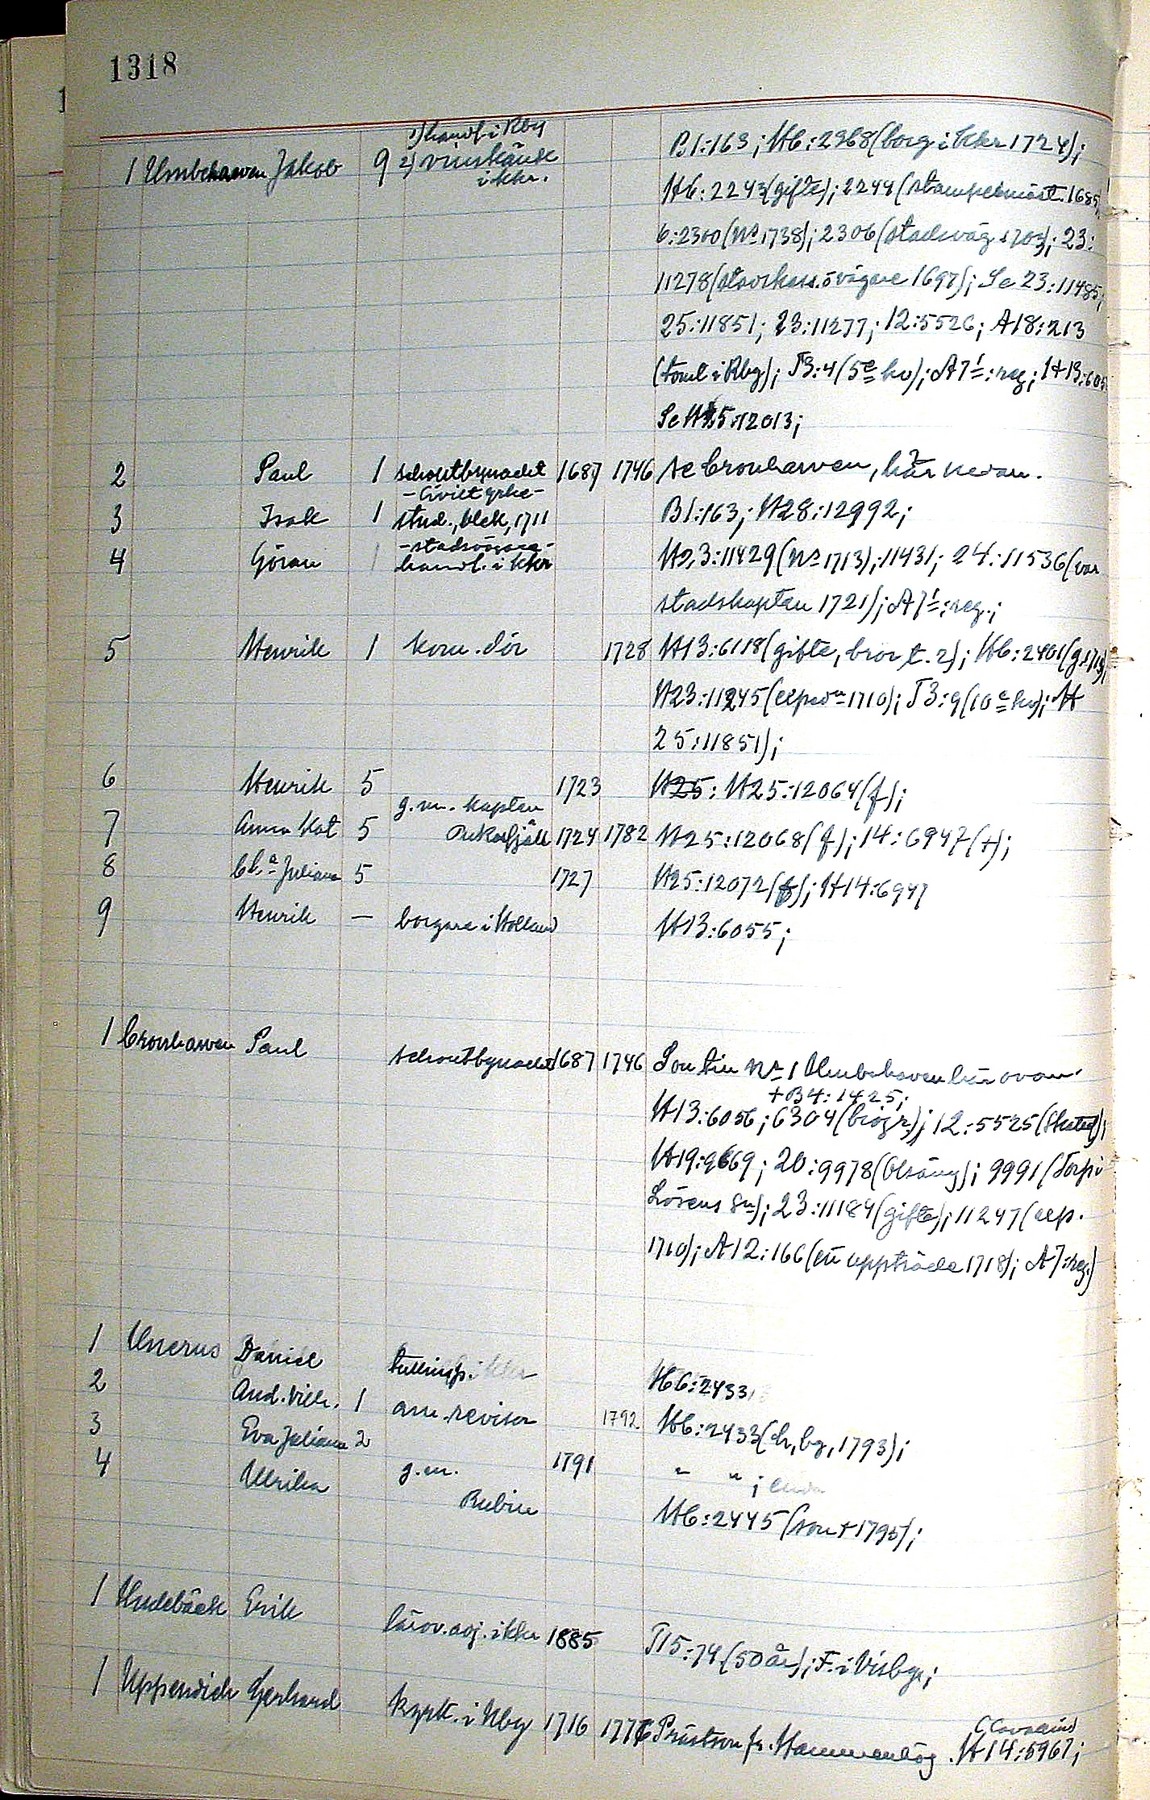 1318
1 Umbehawen Jakob 9 1) handl. i Rby
2) vinskänk
i Kkr.
B1:163; H6:2368 (borg i Kkr 1724);
H6:2243 (gifte); 2244 (stämpelmäst. 1685,
6:2300 (No 1738); 2306 (stadsväg. 1703); 23:
11278 (stadskass. o vägare 1697); Se 23:11485;
25:11851; 23:11277; 12:5526; A18:213
(toml i Rby); T3:4 (5e kv); A7:reg; H13:605
Se H25:12013;
2 Paul 1 schoutbynacht 1687 1746 Se Cronhawen, här nedan.
3 Isak 1 -Civilt yrke-
stud., blek, 1711 B1:163; H28:12992;
4 Göran 1 -stadsvägare-
handl. i Kkr H23:11429 (No 1713); 11431; 24:11536 (var
stadskapten 1721); A7:reg.;
5 Henrik 1 kom.dör 1728 H13:6118 (gifte, bror t. 2); H6:2401 (g 1713)
H23:11245 (exp. 1710); T3:9 (10e kv); H
25:11851);
6 Henrik 5 1723 H25: H25:12064 (f);
7 Anna Kat 5 g.m. kapten
Ankarfjäll 1724 1782 H25:12068 (f); 14:6947 (+);
8 Chra Juliana 5 1727 H25:12072 (f); H14:6947
9 Henrik — borgare i Holland H13:6055;
1 Cronhawen Paul schoutbynacht 1687 1746 Son till No 1 Umbehawen här ovan.
+ B4:1425;
H13:6056; 6304 (biogr.); 12:5525 (
H19:9669; 20:9978 ( 9991 (Torp i
Lösens Sn); 23:11184 (gifte); 11247 (exp.
1710); A12:166 (ett uppträde 1718); A7:reg.)
1 Unerus Daniel tullinsp. i Kkr H6:2433
2 And. Vilh. 1 am. revisor 1792 H6:2433 (h, bg, 1793);
3 Eva Juliana 2 1791 " " ;
4 Ulrika g.m.
Rubin H6:2445 (son + 1795);
1 Undebäck Erik lärov. adj. i Kkr 1885 T15:74 (50 år); F. i Visby;
1 Uppendich Gerhard kyrk. i Nby 1716 1776 Prästson fr. Hammenhög. (Cavallin)
H14:5967;